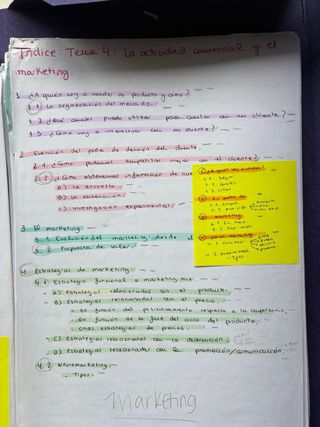 Índice. Tema 4. La actividad comercial y el
marketing.
1. ¿A quién voy a vender mi producto y cómo?
1.1. La segmentación del mercado.
1.2. ¿Qué canales puedo utilizar para contar con un cliente?
1.3. ¿Cómo voy a interactuar con mi cliente?
2. Evolución del punto de decisión del cliente.
2.1. ¿Cómo podemos empatizar mejor con el cliente?
2.2. ¿Cómo obtenemos información de
A) La encuesta.
B) La observación.
C) Investigación experimental.
3. El marketing.
3.1. Evolución del marketing desde el
3.2. Propuesta de valor.
4. Estrategias de marketing.
4.1. Estrategia funcional o marketing mix.
A) Estrategias relacionadas con el producto.
B) Estrategias relacionadas con el precio.
- En función del posicionamiento respecto a la competencia.
- En función de la fase del ciclo del producto.
- Otras estrategias de precios.
C) Estrategias relacionadas con la distribución.
D) Estrategias relacionadas con la promoción/comunicación.
4.2. Neuromarketing.
- Tipos.
Marketing